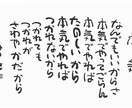 なんでもいいからさ
本気でやってごらん
本気でやれば
たのしいから
本気でやれば
つかれないから
つかれても
つかれが
さわやかだから